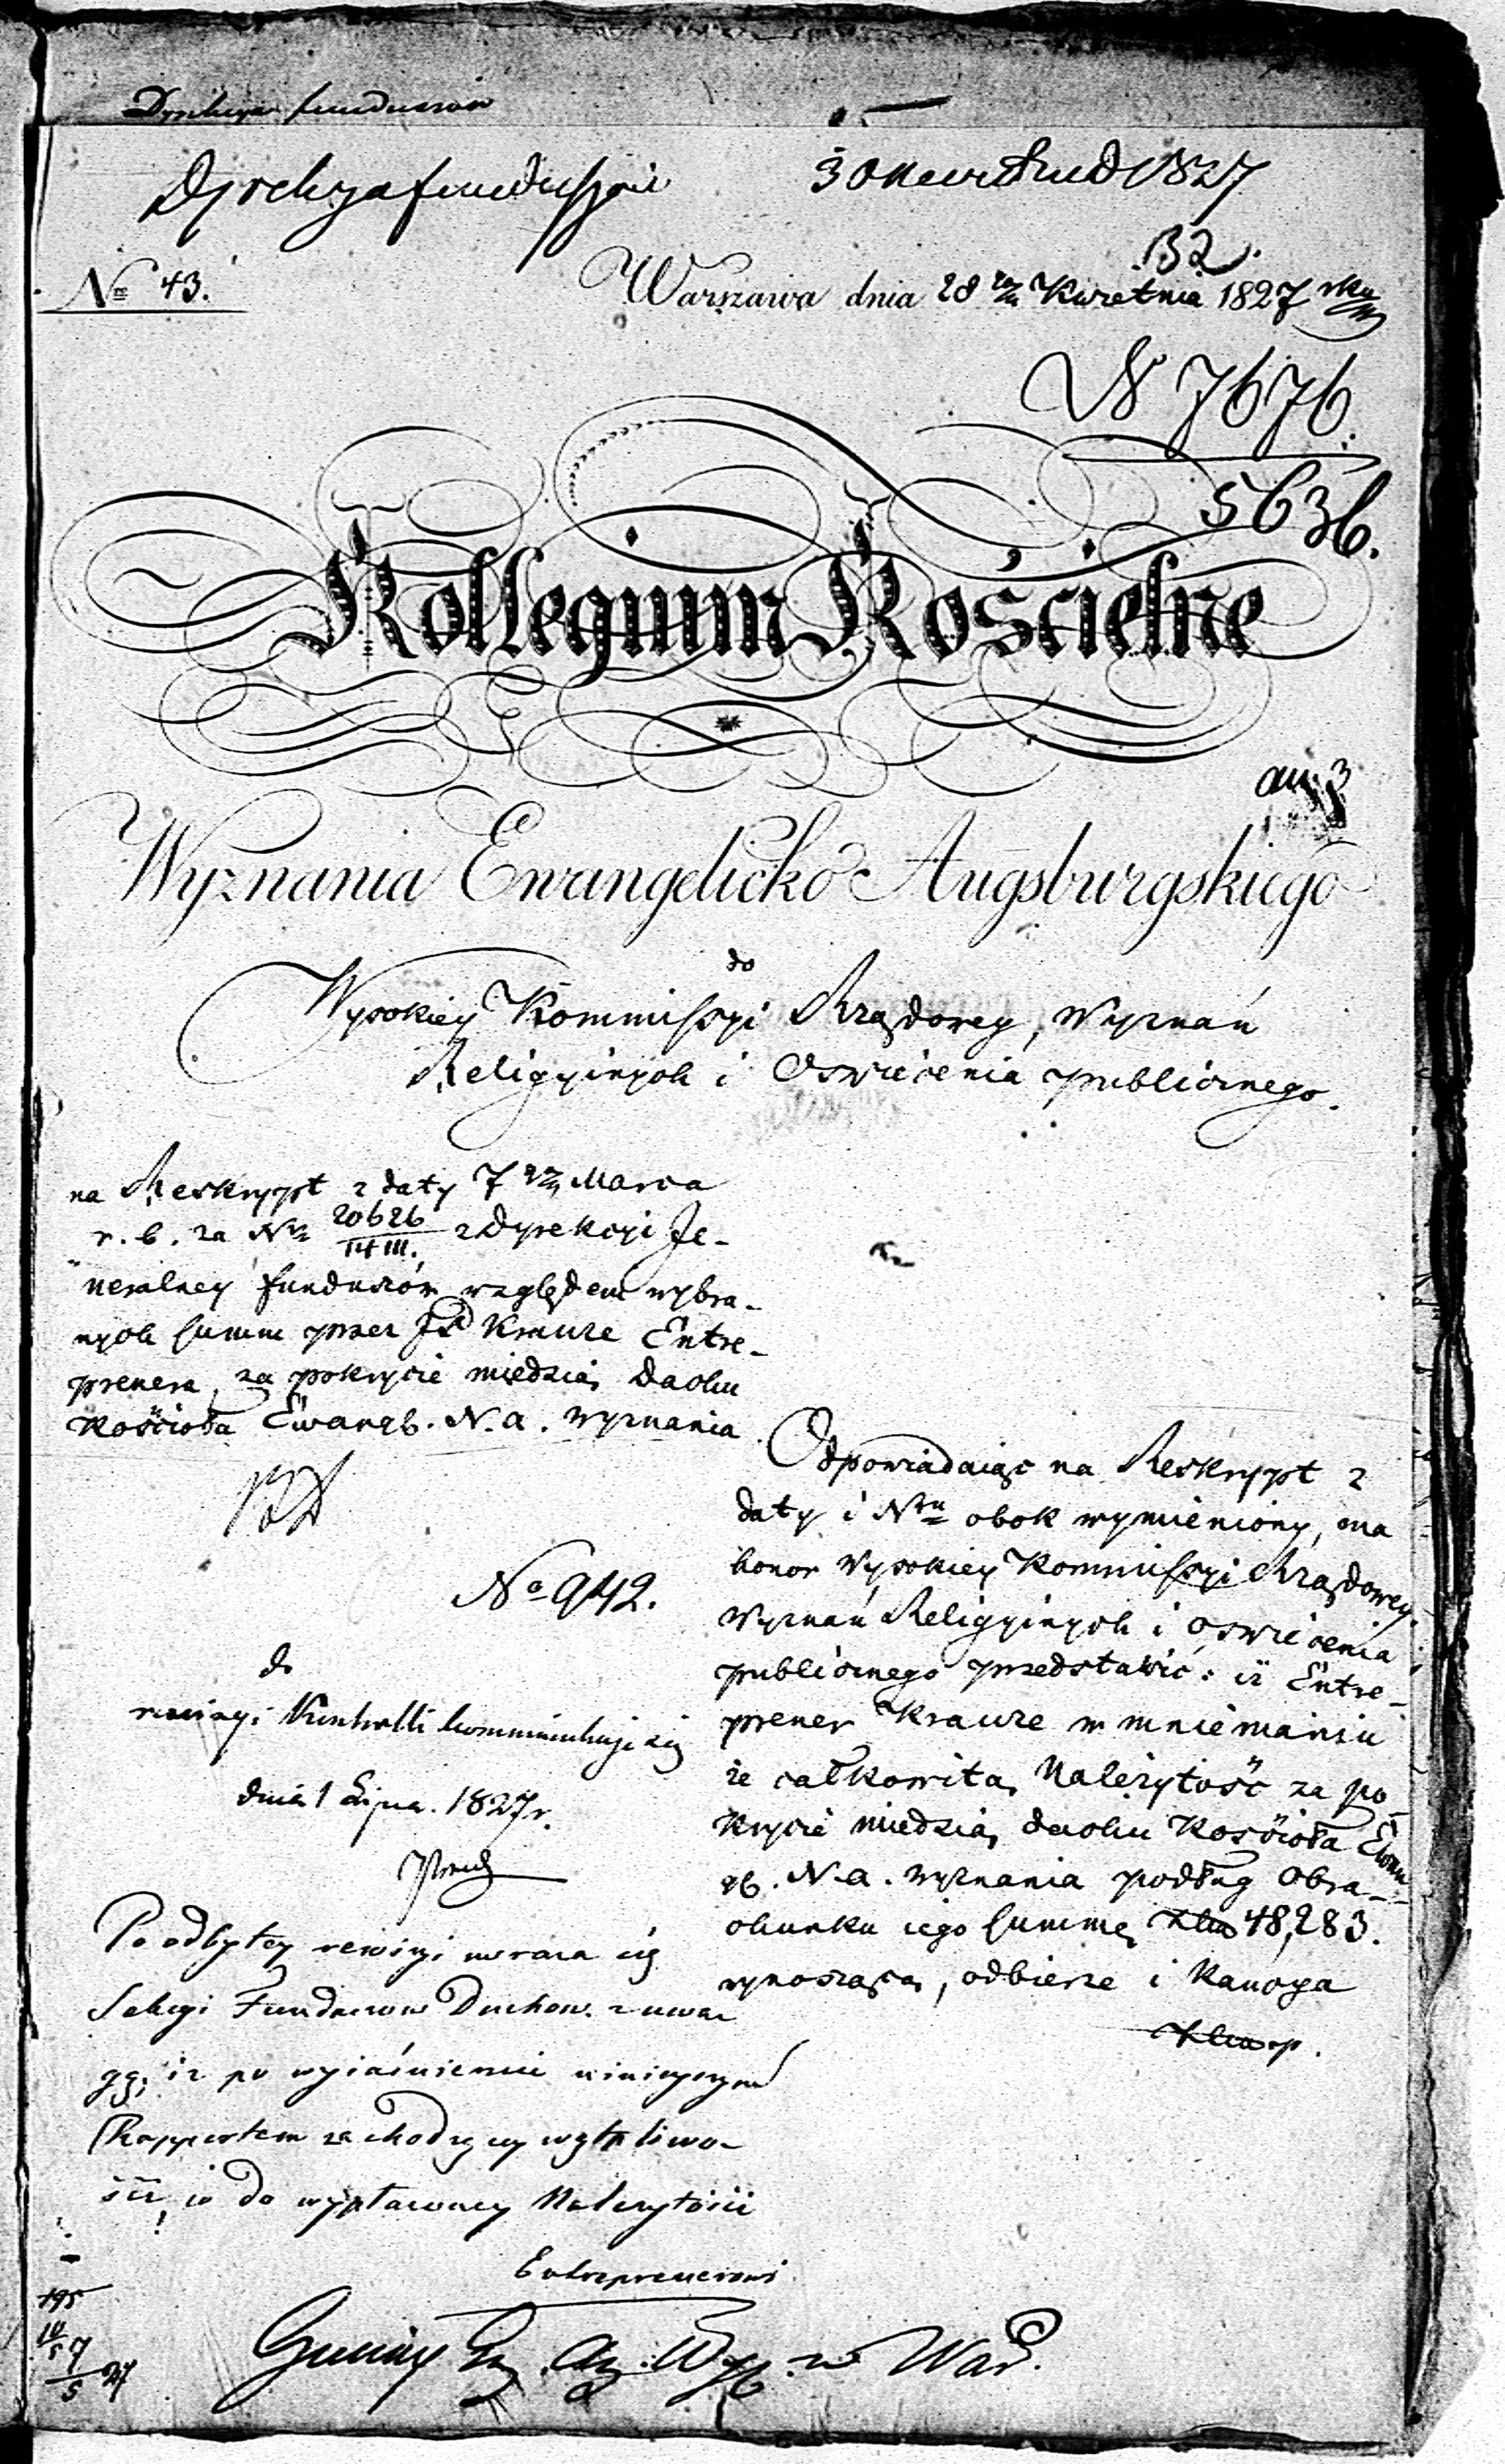 Dyrekcya funduszów
Dyrekcya funduszów 30 1827
32.
Nro 43. Warszawa dnia 28go Kwietnia 1827 roku
N 7676
5636.
Kollegium Kościelne
Wyznania Ewangelicko Augsburgskiego
do
Wysokiey Kommissyi Rządowey, Wyznań
Religyinych i Oswiecenia publicznego.
na Reskrypt z daty 7go Marca
r. b. za Nr 20626/14 III. z Dyrekcyi Je-
neralney funduszów względem wybra-
nych summ przez Krauze Entre-
prenera, za pokrycie miedzią Dachu
Kościoła Ewangb. N. a. wyznania
No 942.
do
rewizyi Kontrolli kommunikuje się
dnia 1 Lipca. 1827 r.
Po odbytey rewizyi wraca się
Sekcyi Funduszow Duchow. z uwa
gą, iz po wyiaśnieniu ninieyszym
Rapportem zachodzącey wątpliwo-
ści, co do wypłaconey Należytości
Entreprenerowi
Odpowiadaiąc na Reskrypt z
daty i Nru obok wymieniony, ma
honor Wysokiey Kommissyi Rządowey
Wyznań Religyinych i Oswiecenia
publicznego przedstawić: iż Entre-
prener Krauze w mniemaniu
że całkowitą Należytość za po-
krycie miedzią dachu Kościoła Ewan
gb. N. a. wyznania podług Obra-
chunku iego summę Złp 48,283.
wynoszącą, odbierze i Kaucya
Złp.
Gminy Ew. Aug. Wyz. w War.